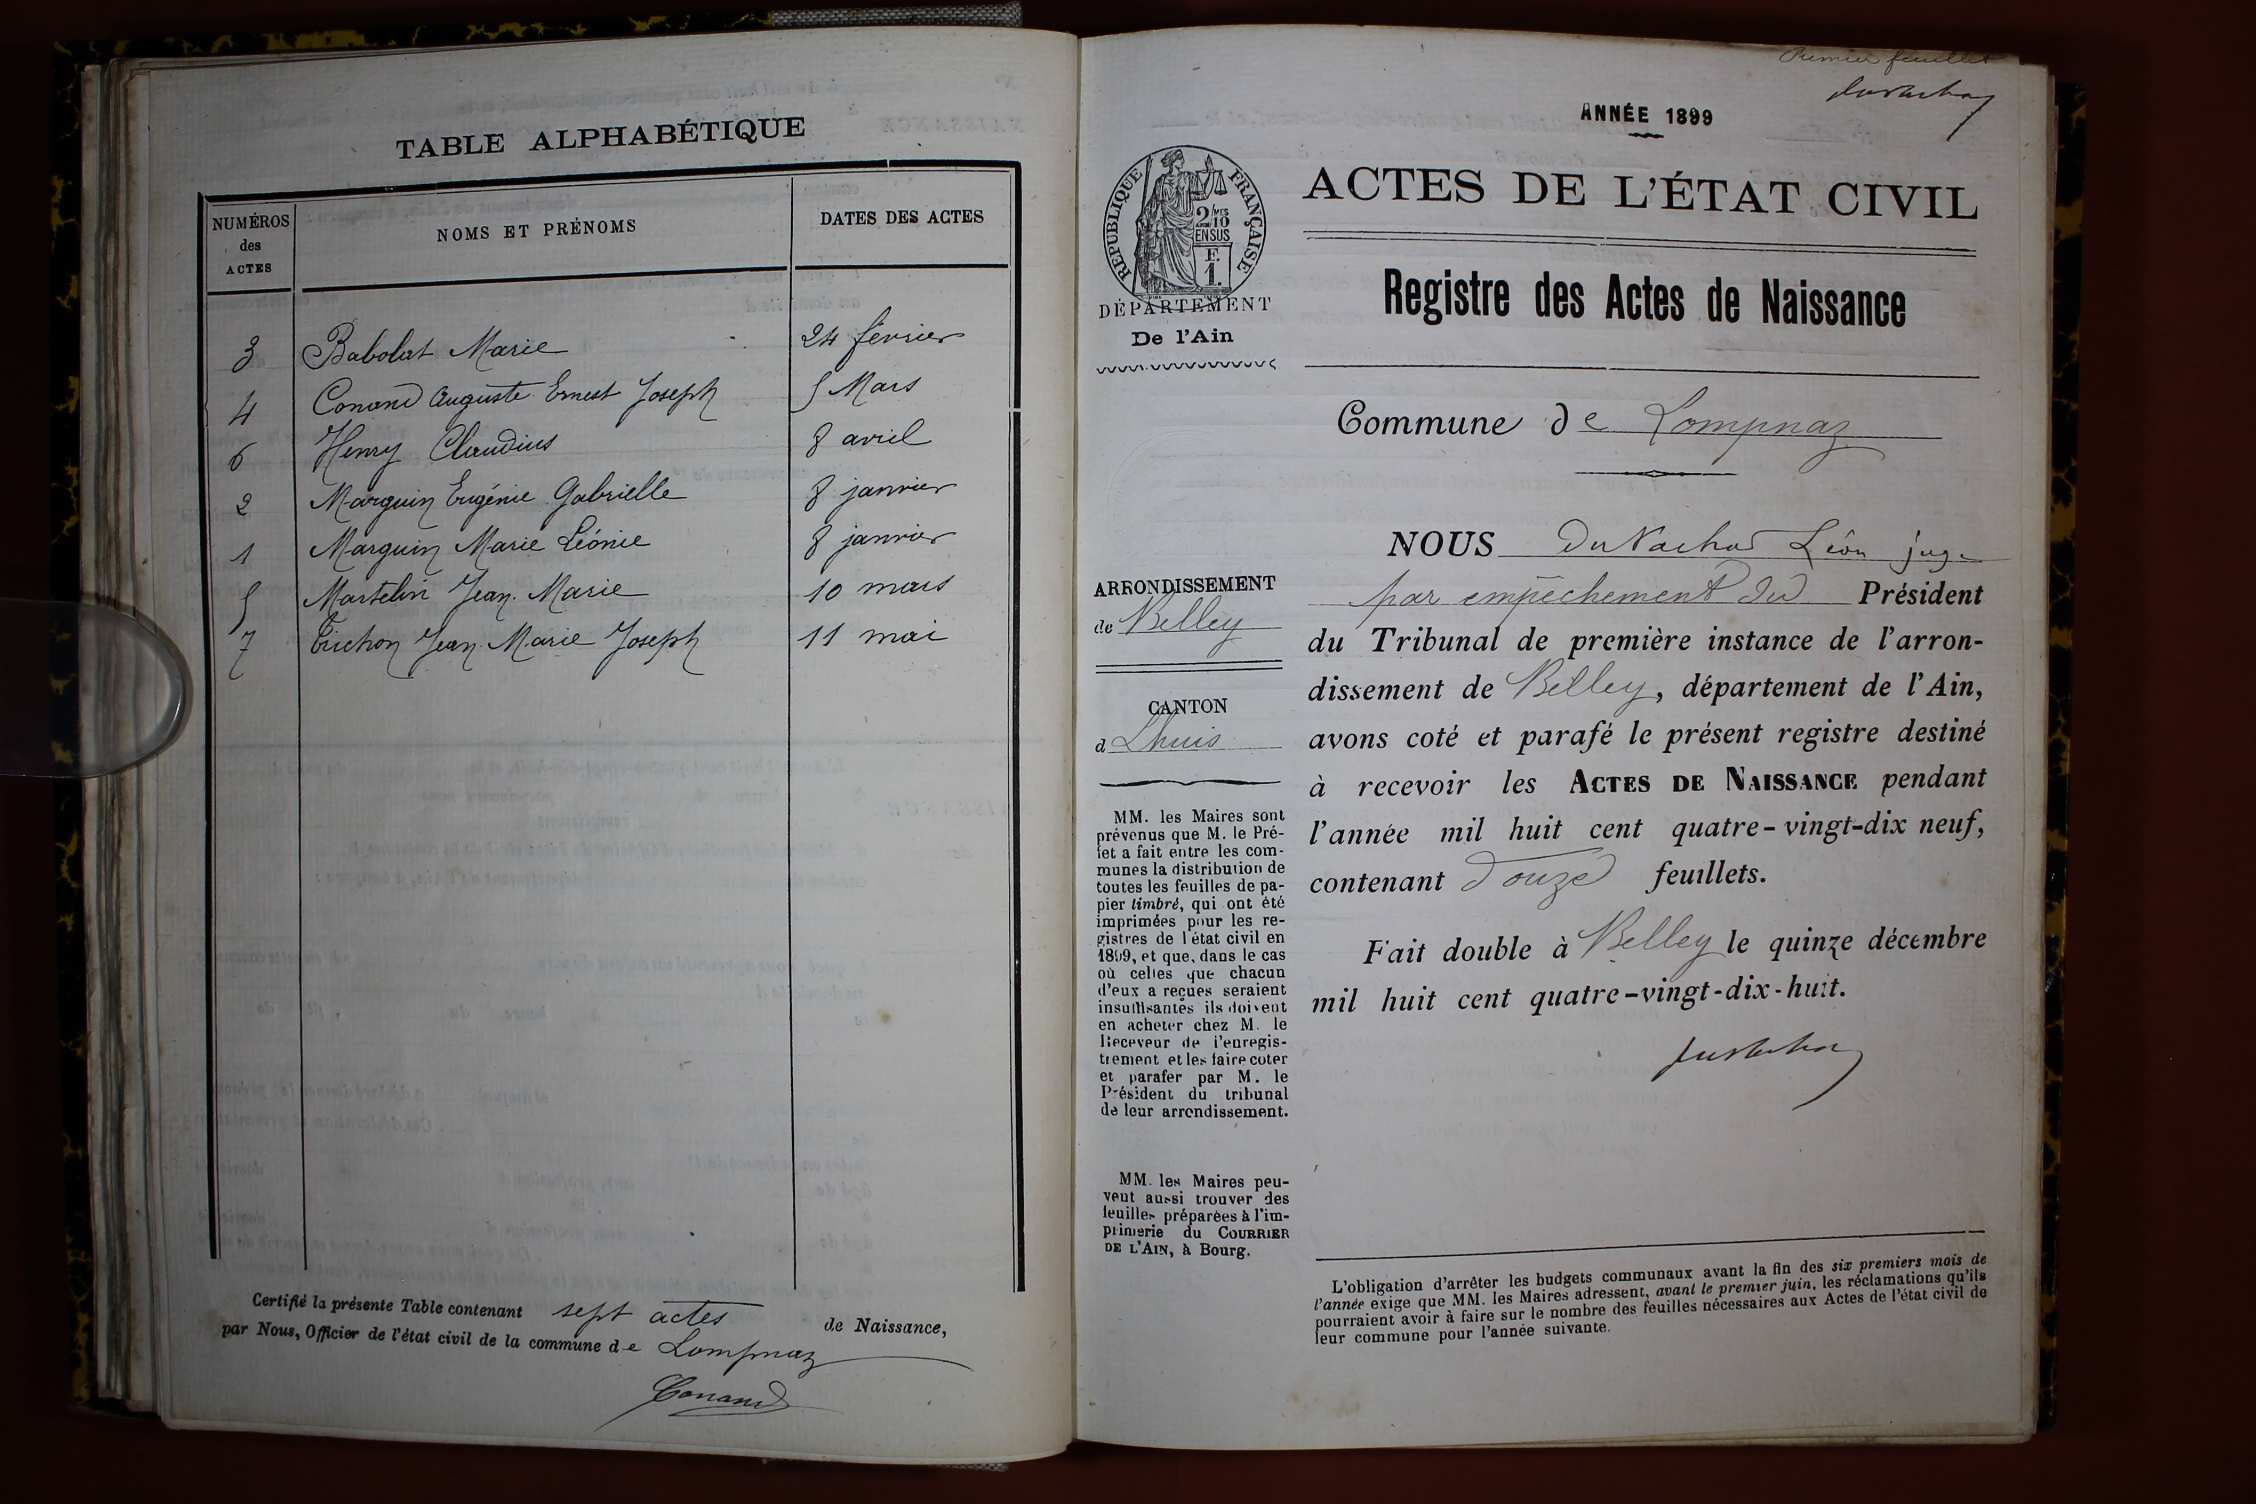 TABLE ALPHABÉTIQUE
NUMÉROS des ACTES
NOMS ET PRÉNOMS
DATES DES ACTES
3 Babolat Marie 24 février
4 Conand Auguste Ernest Joseph 5 Mars
6 Henry Claudius 8 avril
2 Marguin Eugénie Gabrielle 8 janvier
1 Marguin Marie Léonie 8 janvier
5 Martelin Jean Marie 10 mars
7 Trichon Jean Marie Joseph 11 mai
Certifié la présente Table contenant sept actes de Naissance,
par Nous, Officier de l'état civil de la commune de Lompnaz
Conand
Premier feuillet
ANNÉE 1899
RÉPUBLIQUE FRANÇAISE
2/10
EN SUS
F.
1.
DÉPARTEMENT
De l'Ain
ACTES DE L'ÉTAT CIVIL
Registre des Actes de Naissance
Commune de Lompnaz
ARRONDISSEMENT
de Belley
CANTON
d Lhuis
MM. les Maires sont
prévenus que M. le Pré-
fet a fait entre les com-
munes la distribution de
toutes les feuilles de pa-
pier timbré, qui ont été
imprimées pour les re-
gistres de l'état civil en
1899, et que, dans le cas
où celles que chacun
d'eux a reçues seraient
insuffisantes ils doivent
en acheter chez M. le
Receveur de l'enregis-
trement et les faire coter
et parafer par M. le
Président du tribunal
de leur arrondissement.
MM. les Maires peu-
vent aussi trouver des
feuilles préparées à l'im-
primerie du COURRIER
DE L'AIN, à Bourg.
NOUS Léon juge
par empêchement du Président
du Tribunal de première instance de l'arron-
dissement de Belley, département de l'Ain,
avons coté et parafé le présent registre destiné
à recevoir les ACTES DE NAISSANCE pendant
l'année mil huit cent quatre-vingt-dix neuf,
contenant Douze feuillets.
Fait double à Belley le quinze décembre
mil huit cent quatre-vingt-dix-huit.
L'obligation d'arrêter les budgets communaux avant la fin des six premiers mois de
l'année exige que MM. les Maires adressent, avant le premier juin, les réclamations qu'ils
pourraient avoir à faire sur le nombre des feuilles nécessaires aux Actes de l'état civil de
leur commune pour l'année suivante.